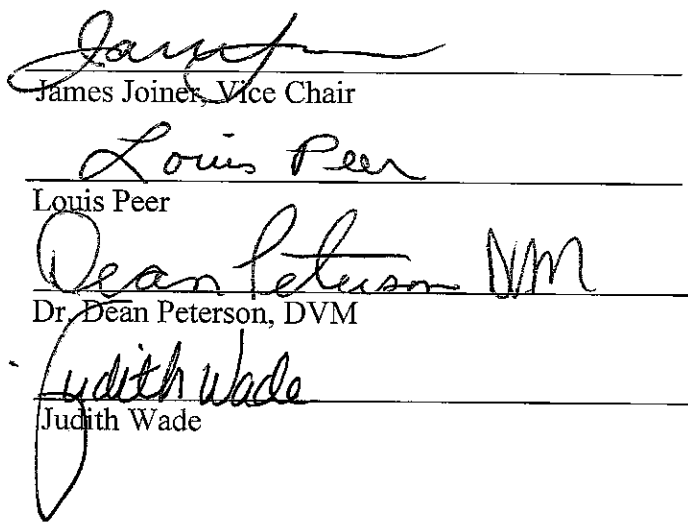 James Joiner, Vice Chair
Louis Peer
Louis Peer
Dean Peterson DVM
Dr. Dean Peterson, DVM
Judith Wade
Judith Wade